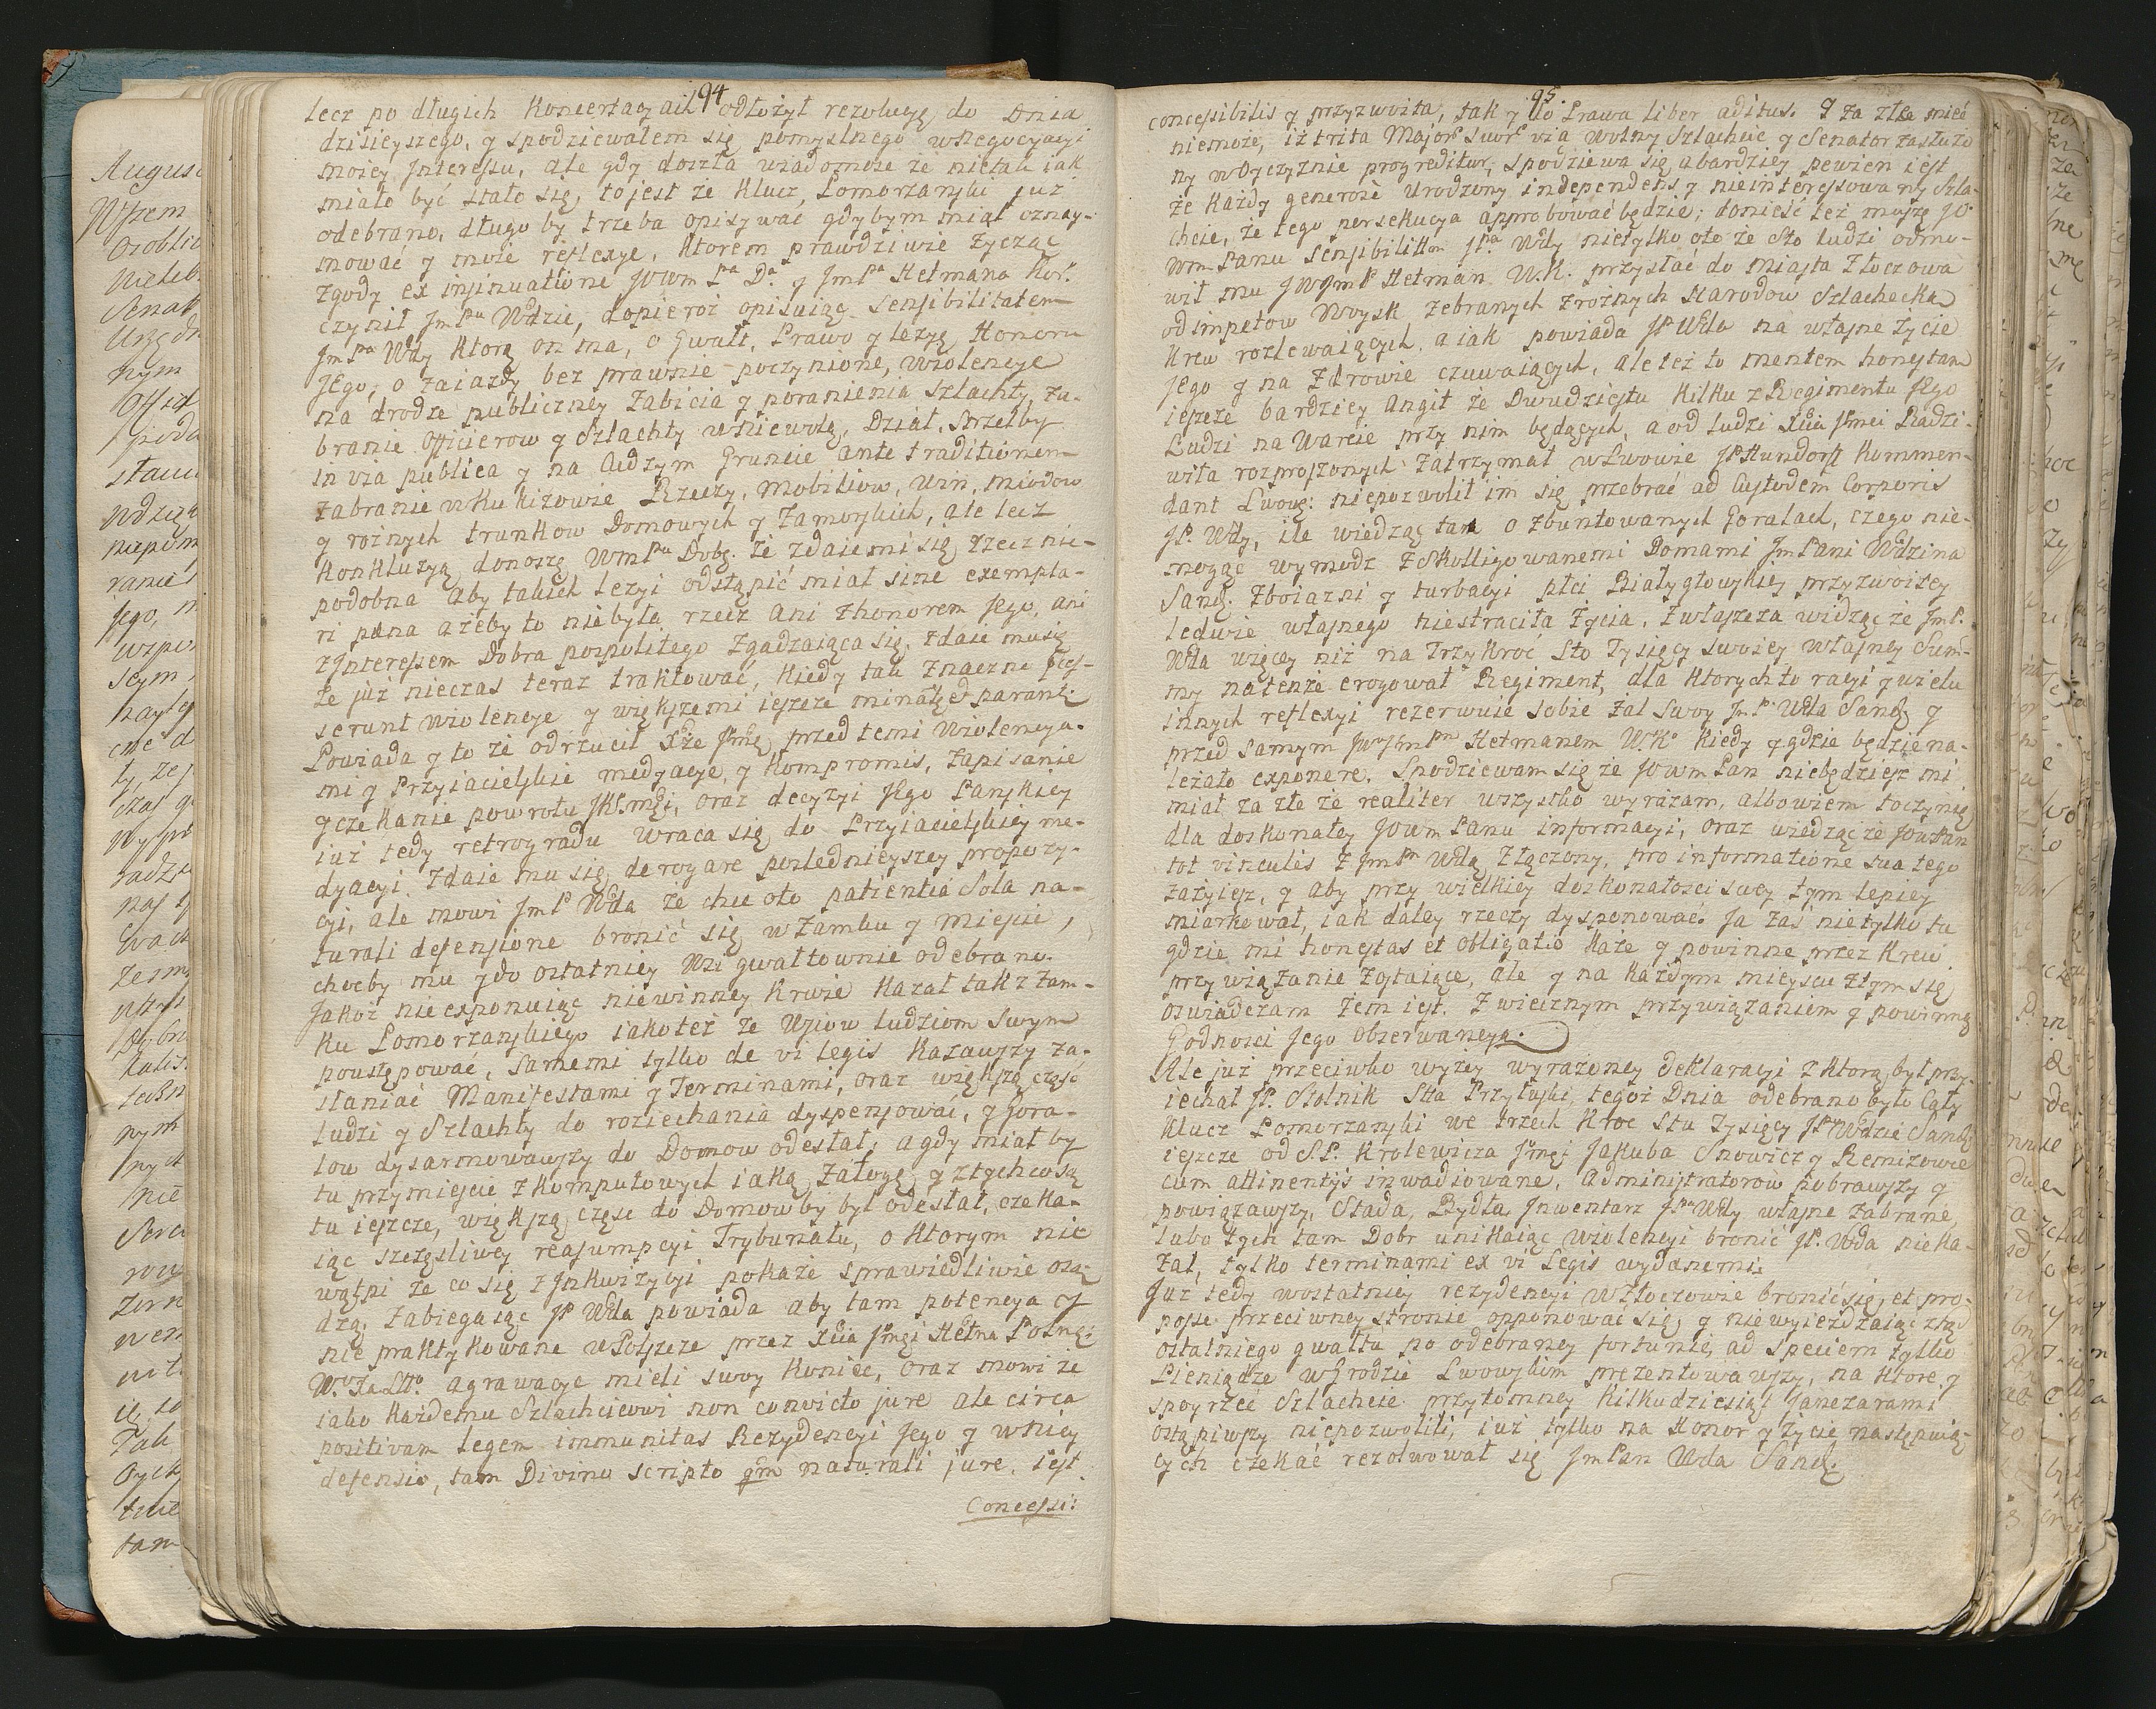 94
lecz po długich Koncertacyach odłożył rezolucyę do Dnia
dzisieyszego, y spodziewałem się pomyslnego w Negocyacyi
moiey Jnteressu, ale gdy doszła wiadomosc że nietak iak
miało być stało się, to jest że Klucz Pomorzanski już
odebrano, długo by trzeba opisywać gdybym miał oznay-
mować y moie reflexye, Ktorem prawdziwie życząc
zgody ex insinuatione JOWm Pa Da y Jm Pa Hetmana Kor.
czynił Jm Pu Wdzie, dopieroż opisuiąc Sensibilitatem
Jm Pa Wdy Ktorą on ma, o Gwałt, Prawo y lezyę Honoru
Jego, o zaiazdy bez prawnie poczynione, Wiolencye
na drodze publiczney zabicia y poranienia Szlachty, za-
branie Officierow y Szlachty w Niewolą, Dział, Strzelby
in via publica y na Cudzym Gruncie ante traditionem
zabranie w Kukizowie Rzeczy, Mobiliow, win, miodow
y rożnych trunkow Domowych y Zamorskich, ale lecz
Konkluzyą donoszę Wm Pu Dobr. że zdaiemi się rzecz nie-
podobna aby takich lezyi odstąpić miał sine exempla-
ri pæna ażeby to niebyła rzecz ani z honorem Jego, ani
z Jnteressem Dobra pospolitego zgadzaiąca się, zdaie musię
że już nieczas teraz traktować, Kiedy tak znaczne sces-
serunt wiolencye y większemi ieszcze minatę parant.
Powiada y to że odrzucił Xże Jmć przed temi Wiolencya-
mi y Przyiacielskie medyacye, y Kompromis, zapisanie
y czekanie powrotu JKMci, oraz decyzyi Jego Panskiey
iuż tedy retrogradu wraca się do Przyiacielskiey me-
dyacyi zdaie mu się derogare poslednieyszey propozy-
cyi, ale mowi Jm P Wda że chce oto patientia Sola na-
turali defensione bronić się w Zamku y Miescie,
choćby mu y do ostatniey Wsi gwałtownie odebrano.
Jakoż nie exponuiąc niewinney Krwie Kazał tak z Zam-
ku Pomorzanskiego iakoteż ze Wsiow ludziom Swym
poustępować, samemi tylko de vi legis Kazawszy za-
słaniać Manifestami y Terminami, oraz większą część
ludzi y Szlachty do roziechania dyspensować, y Gora-
low dysarmowawszy do Domow odesłał, a gdy miał by
tu przymiescie z Komputowych iaką załogę y z tych co są
tu ieszcze, większą częsc do Domow by był odesłał, czeka-
iąc szczęsliwey reasumpcyi Trybunału, o Ktorym nie
wątpi że co się z Jnkwizycyi pokaże sprawiedliwie osą-
dzą. Zabiegaiąc JP Wda powiada aby tam potencya y
nie praktykowane w Polszcze przez Xcia Jmci Hetna Polnęi
Wo Xa Litto agrawacye mieli swoy Koniec, oraz mowi że
iako Każdemu Szlachcicowi non convicto jure ale circa
positivam legem immunitas Rezydencyi Jego y w Niey
defensio, tam Divino scripto qm naturali jure iest
Concessi:
95.
concessibilis y przyzwoita, tak y do Prawa liber aditus. Y za złe mieć
niemoże, iż trita Major Suor via wolny Szlachcic y Senator zasłużo
ny w Oyczyznie progreditur, spodziewa się a bardziey pewien iest
że Każdy generose urodzony independens y nieinteressowany Szla-
chcic, że tego persekucya approbować będzie; donieść też muszę JO
Wm Panu Sensibilitem JPa Wdy nietylko oto że Sto ludzi odmo-
wił mu JWJm P Hetman W.K. przysłać do Miasta Złoczowa
od impetow Woysk zebranych z rożnych Narodow Szlachecką
Krew rozlewaiących, a iak powiada JP Wda na własne życie
Jego y na Zdrowie czuwaiących, ale też to mentem honestam
ieszcze bardziey Angit że Dwudziestu Kilku z Regimentu Jego
Ludzi na Warcie przy nim będących, a od ludzi Xcia Jmci Radzi-
wiła rozproszonych zatrzymał w Lwowie JP Kundorff Kommen-
dant Lwows: niepozwolił im się przebrać ad Custodem Corporis
JP. Wdy, ile wiedząc tam o zbuntowanych Goralach, czego nie-
mogąc wymodz z Skolligowanemi Domami Jm Pani Wdzina
Sand. z boiazni y turbacyi płci Białygłowskiey przyzwoitey
ledwie własnego niestraciła życia. Zwłaszcza widząc że Jm P.
Wda więcey niż na Trzykroć Sto Tysięcy Swoiey własney Sum-
my na tenże erogował Regiment, dla Ktorych to racyi y wielu
innych reflexyi rezerwuie Sobie żal Swoy Jm P Wda Sand y
przed Samym JWJm Pm Hetmanem W.K. Kiedy y gdzie będzie na-
leżało exponere. Spodziewam się że JOWm Pan niebędziesz mi
miał za złe że realiter wszystko wyrażam, albowiem to czynię
dla doskonałey JOWm Panu informacyi, oraz wiedząc że JOWPan
tot vinculis z Jm Pm Wdą złączony, pro informatione Sua tego
zażyiesz, y aby przy wielkiey doskonałosci swey tym lepiey
miarkował, iak daley rzeczy dysponować. Ja zaś nietylko tu
gdzie mi honestas et obligatio Każe y powinne przez Krew
przywiązanie zostaiące, ale y na Każdym mieyscu z tym się
oswiadczam żem iest. Z wiecznym przywiązaniem y powinną
Godnosci Jego Obserwancyą.
Ale już przeciwko wyżey wyrażoney deklaracyi z Ktorą był przy-
iechał JP. Stolnik Stta Przyłuski, tegoż Dnia odebrano było Cały
Klucz Pomorzanski we trzech Kroc Stu Tysięcy JP Wdzie Sand
ieszcze od S.P. Krolewicza Jmci Jakuba Snowicz y Remizowce
cum attinentijs inwadiowane, Administratorow pobrawszy y
powiązawszy, Stada, Bydła, Jnwentarz JPa Wdy własne zabrane,
lubo tych tam Dobr unikaiąc wiolencyi bronić JP. Wda nieka-
zał, tylko terminami ex vi Legis wydanemi:
Już tedy w ostatniey rezydencyi w Złoczowie bronić się, et pro-
posse przeciwney stronie opponować się, y nie wyiezdzaiąc ztąd
ostatniego gwałtu po odebraney fortunie, ad Speciem tylko
Pieniądze w Grodzie Lwowskim prezentowawszy, na Ktore y
spoyrzeć Szlachcie przytomney Kilkudziesiąt Janczarami
ostąpiwszy niepozwolili, iuż tylko na Honor y życie następuią-
cych czekać rezolwował się Jm Pan Wda Sand: